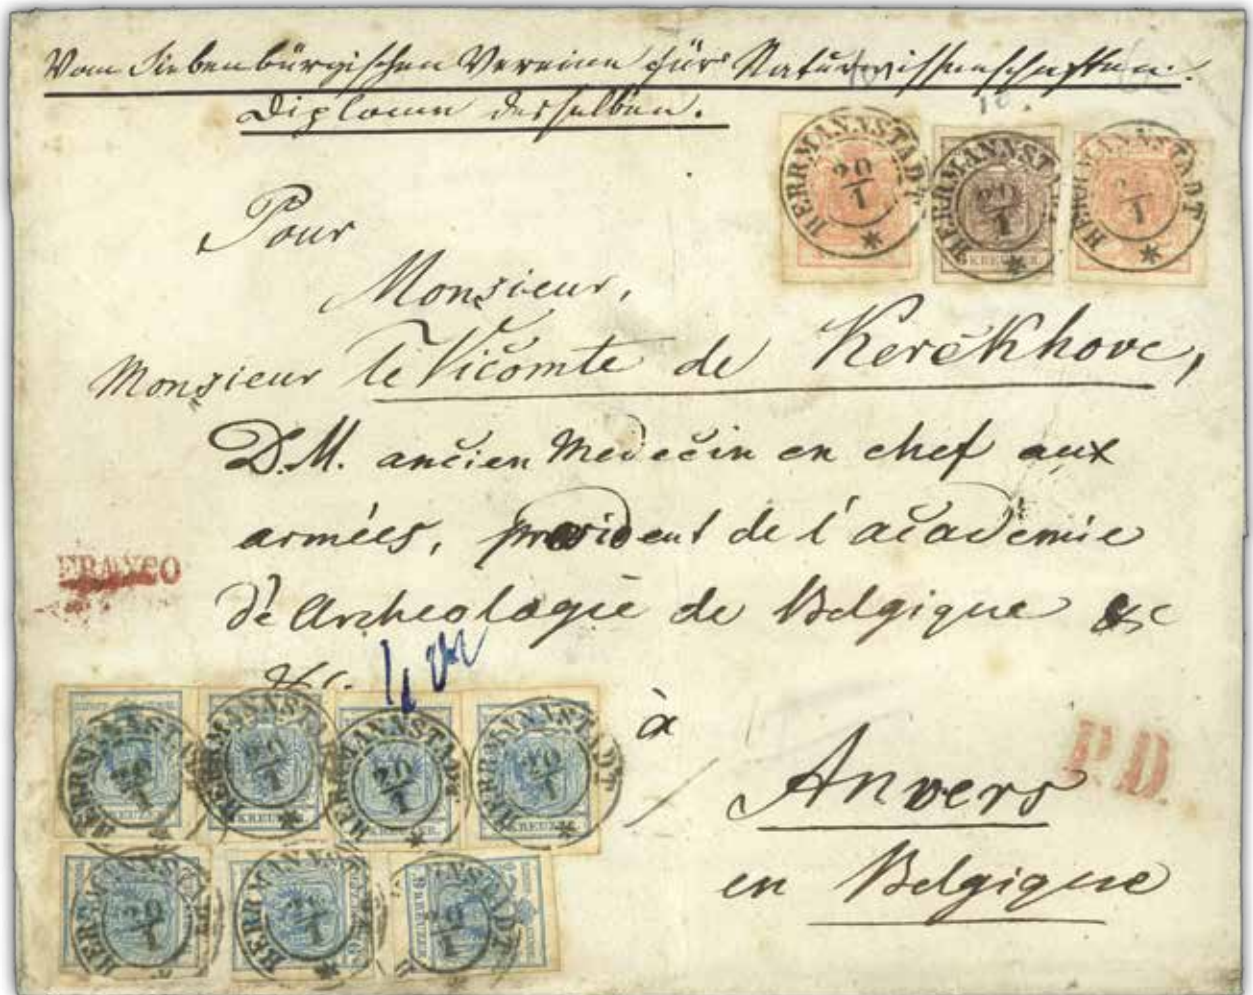 Vom Siebenbürgischen Vereine fürs Naturwissenschaften.
Diplom desselben.
HERRMANNSTADT 20/1
HERRMANNSTADT 20/1
KREUZER
HERRMANNSTADT 20/1
Pour
Monsieur,
Monsieur le Vicomte de Kerckhove,
D.M. ancien Medecin en chef aux
armées, president de l'academie
d'Archeologie de Belgique &c
&c.
FRANCO
à
Anvers
P.D.
en Belgique
HERRMANNSTADT 20/1
HERRMANNSTADT 20/1
KREUZER
HERRMANNSTADT 20/1
KREUZER
HERRMANNSTADT 20/1
KREUZER
HERRMANNSTADT 20/1
HERRMANNSTADT 20/1
HERRMANNSTADT 20/1
9 KREUZER